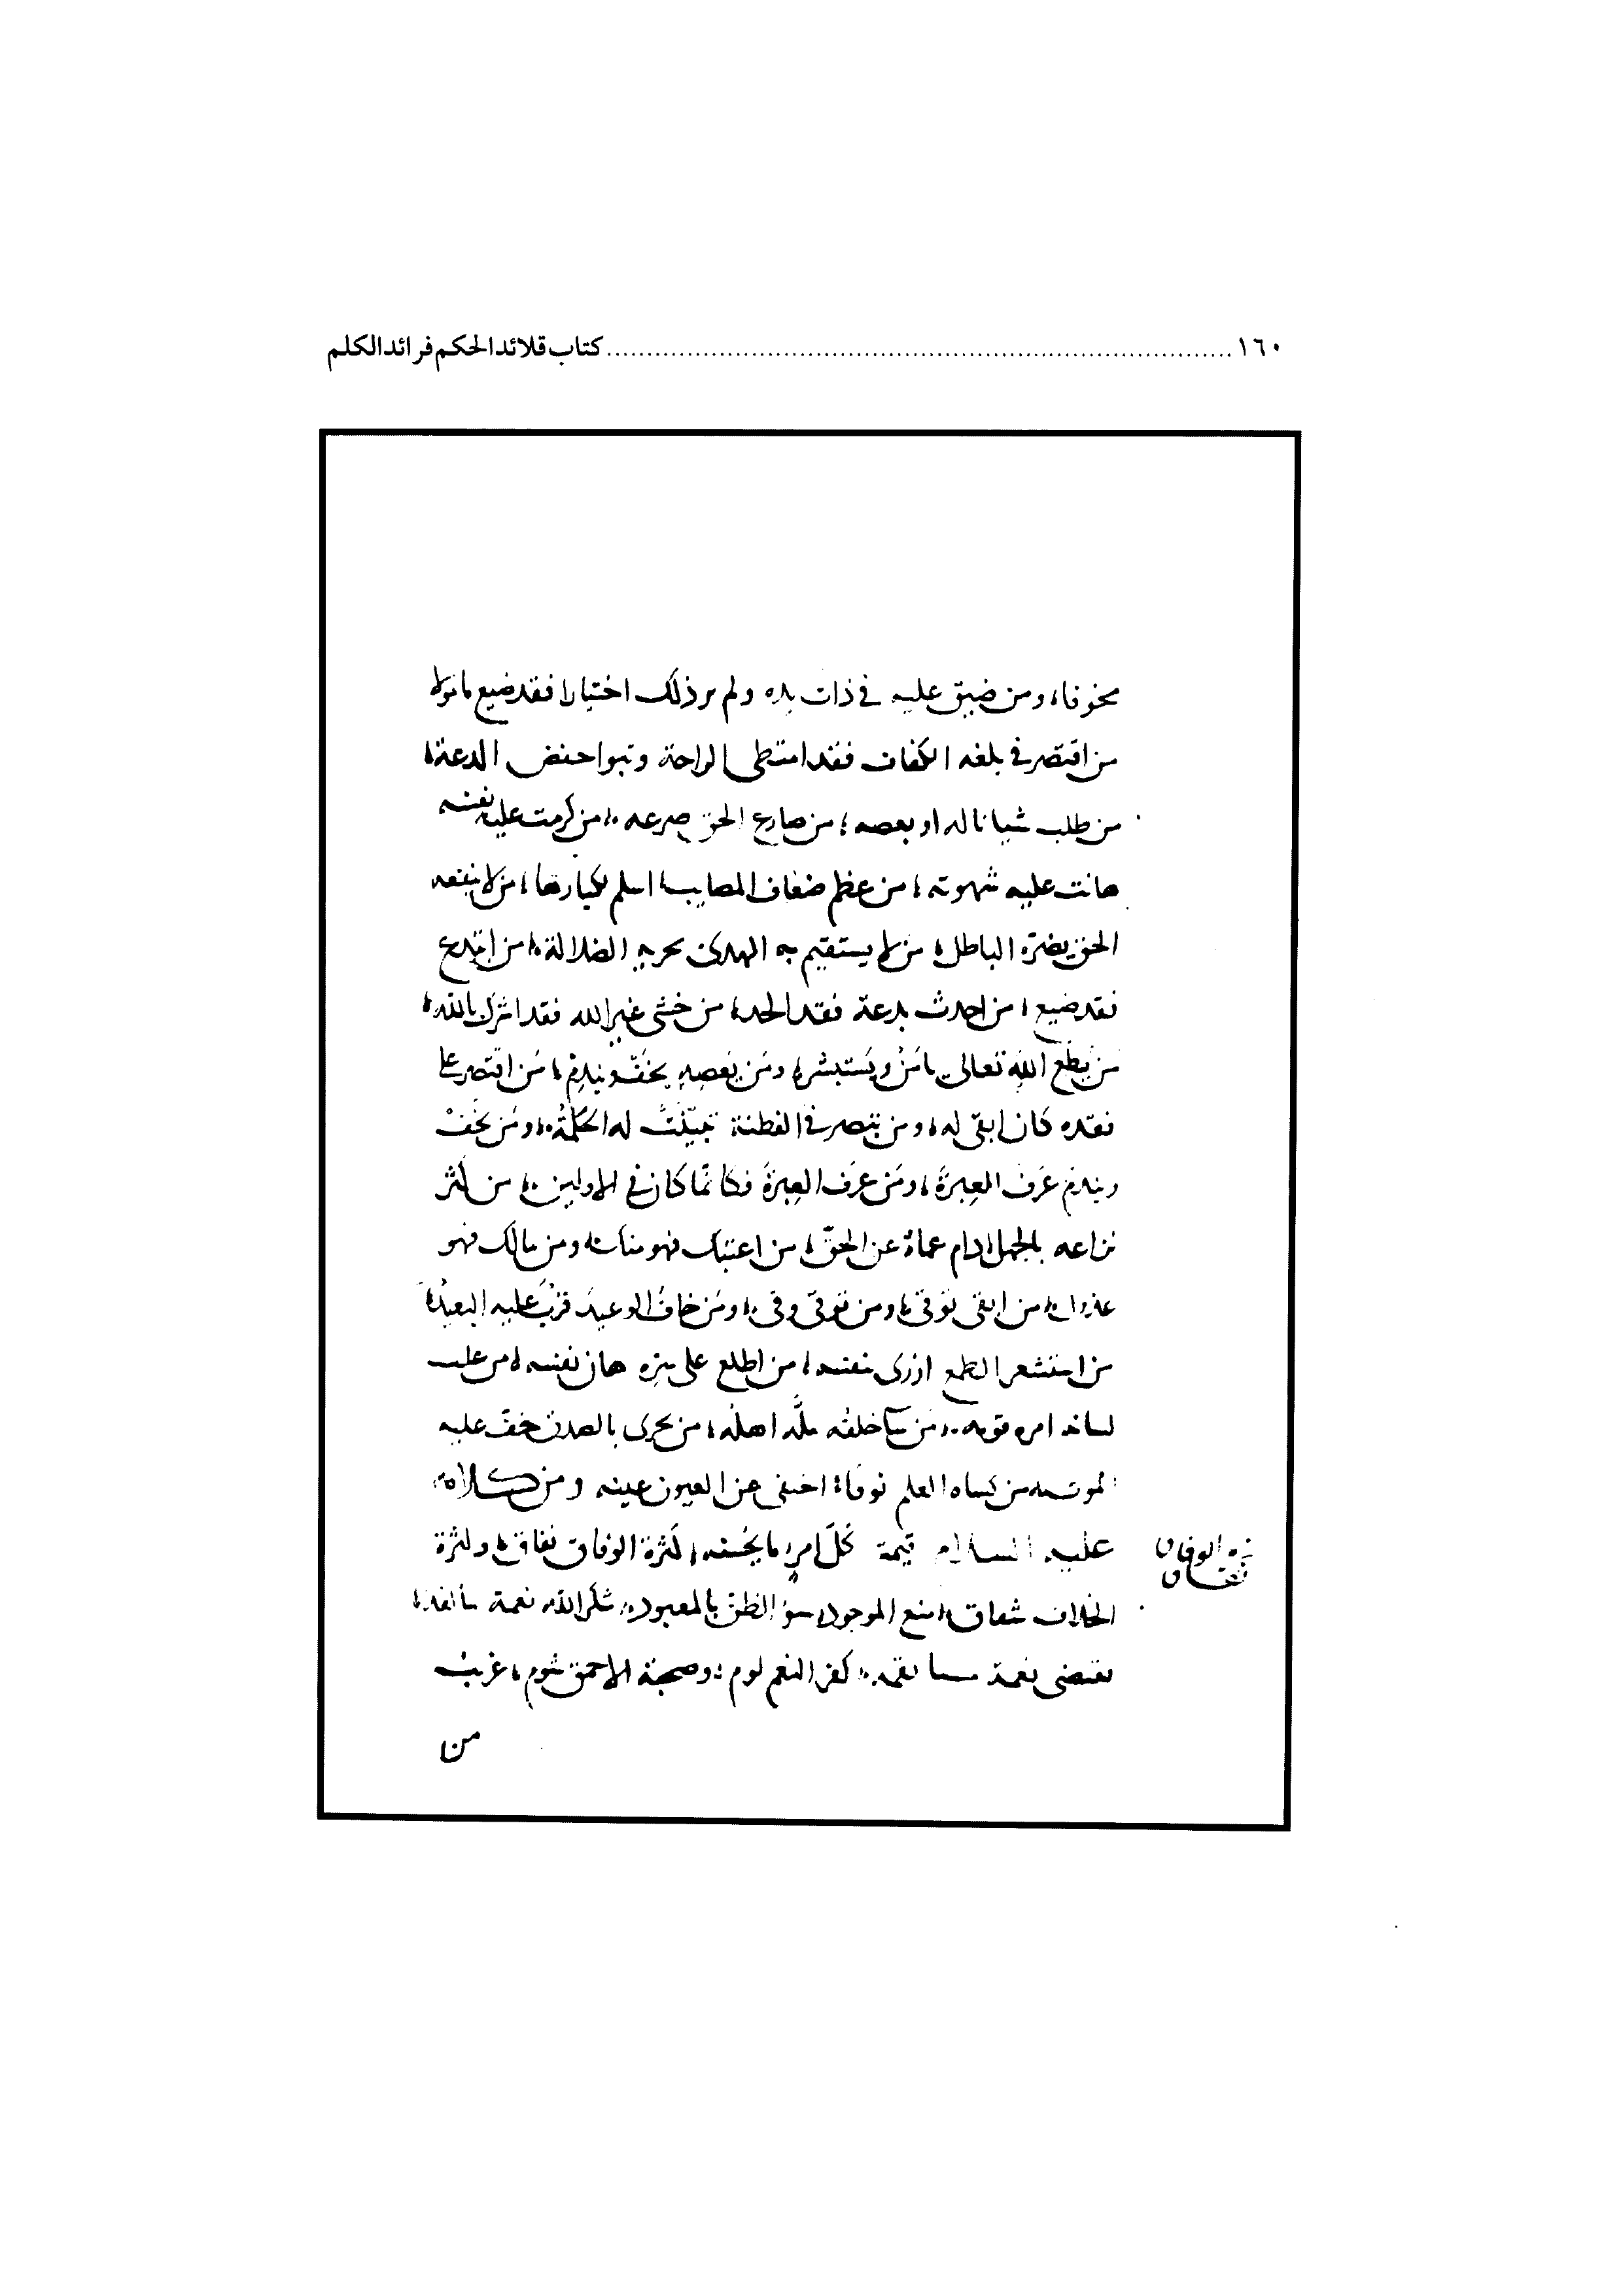 ١٦٠ .......... كتاب قلائد الحكم فرائد الكلم
مخوفا، ومن ضيق عليه في ذات يده ولم ير ذلك اختبارا فقد ضيع مأمولا
من اقتصر في بلغه الكفاف فقد امتطى الراحة وتبوا خفض الدعة،
من طلب شيا ناله او بعضه، من صارع الحق صرعه، من كرمت عليه نفسه
هانت عليه شهوته، من عظم صغار المصايب اسلم لكبارها، من لا ينفعه
الحق يضره الباطل، من لا يستقيم به الهدى يجر به الضلالة، من ابتدع
فقد ضيع، من احدث بدعة فقد الحد، من خشى غير الله فقد اشرك بالله،
من يطع الله تعالى يامن ويستبشر، ومن يعصه يخف ويندم، من اقتصر على
نقده كان ابقى له، ومن تبصر في الفطنة تبينت له الحكمة، ومن يخف
ويندم عرف العبرة، ومن عرف العبرة فكانما كان في الاولين، من كثر
نزاعه بالجهل دام عماه عن الحق، من اعتبك فهو منك، ومن مالك فهو
من اتقى توقى، ومن توقى وقى، ومن خاف الوعيد قرب عليه البعيد،
من استشعر الطمع ازرى بنفسه، من اطلع على سره هان نفسه، من غلب
لسانه امره قومه، من ساخلقه مله اهله، من يحرى بالصدق خف عليه
من كساه العلم ثوبه اختفى عن العيون عيبه ومن كلامه
عليه السلام قيمة كل امرء ما يحسنه، كثرة الوفاق نفاق، وكثرة
كثرة الوفاق نفاق
الخلاف شقاق، منع الموجود سوء الظن بالمعبود، شكر الله نعمة سالفة،
تقتضي نعمة كفر النعم لوم، وصحبة الاحمق شوم،
من